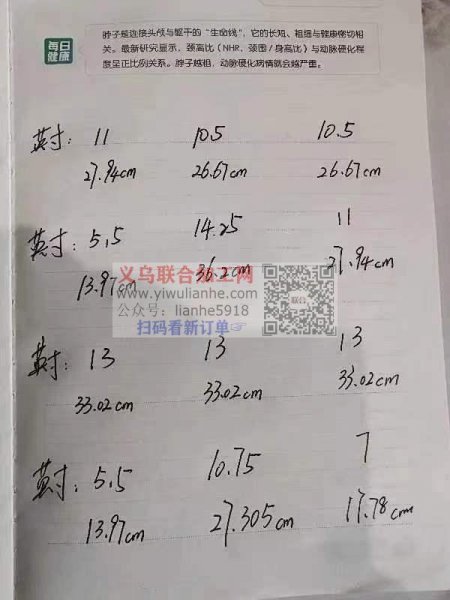 每日
健康
脖子是连接头颅与躯干的“生命线”，它的长短、粗细与健康密切相
关。最新研究显示，颈高比（NHR，颈围／身高比）与动脉硬化程
度呈正比例关系。脖子越粗，动脉硬化病情就会越严重。
英寸: 11 10.5 10.5
27.94cm 26.67cm 26.67cm
英寸: 5.5 14.25 11
13.97cm 36.2cm 27.94cm
义乌联合加工网
www.yiwulianhe.com
公众号：lianhe5918
扫码看新订单☞
英寸: 13 13 13
33.02cm 33.02cm 33.02cm
英寸: 5.5 10.75 7
13.97cm 27.305cm 17.78cm